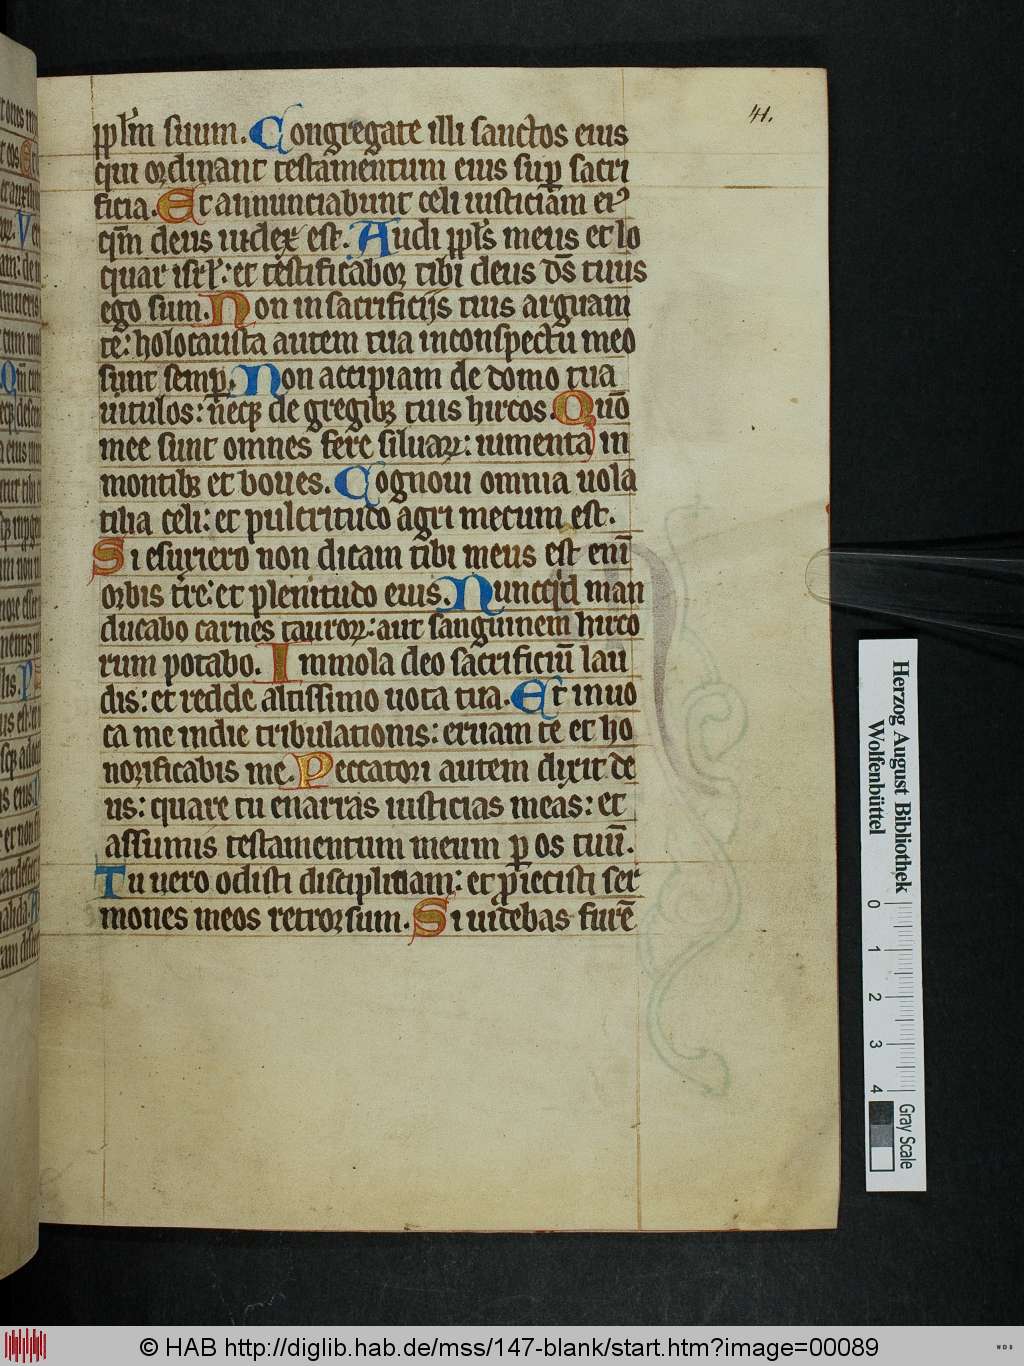 41.
pplm̄ suum. Congregate illi sanctos eius
qui ordinant testamentum eius sup̄ sacri
ficia. Et annunciabunt celi iusticiam eiꝰ
qm̄ deus iudex est. Audi ppl̄s meus et lo
quar isrl̄: et testificabor tibi deus ds̄ tuus
ego sum. Non in sacrificijs tuis arguam
te: holocausta autem tua in conspectu meo
sunt semp̄. Non accipiam de domo tua
uitulos: neqꝫ de gregibꝫ tuis hircos. Quō
mee sunt omnes fere siluaꝝ: iumenta in
montibꝫ et boues. Cognoui omnia uola
tilia celi: et pulcritudo agri mecum est.
Si esuriero non dicam tibi meus est eni̅
orbis tr̄e: et plenitudo eius. Nuncqͥd man
ducabo carnes tauroꝝ: aut sanguinem hirco
rum potabo. Immola deo sacrificiū lau
dis: et redde altissimo uota tua. Et inuo
ca me in die tribulationis: eruam te et ho
norificabis me. Peccatori autem dixit de
us: quare tu enarras iusticias meas: et
assumis testamentum meum ꝑ os tuū.
Tu uero odisti disciplinam: et ꝓiecisti ser
mones meos retrorsum. Si uidebas furē
Herzog August Bibliothek
Wolfenbüttel
0 1 2 3 4
Gray Scale
© HAB http://diglib.hab.de/mss/147-blank/start.htm?image=00089